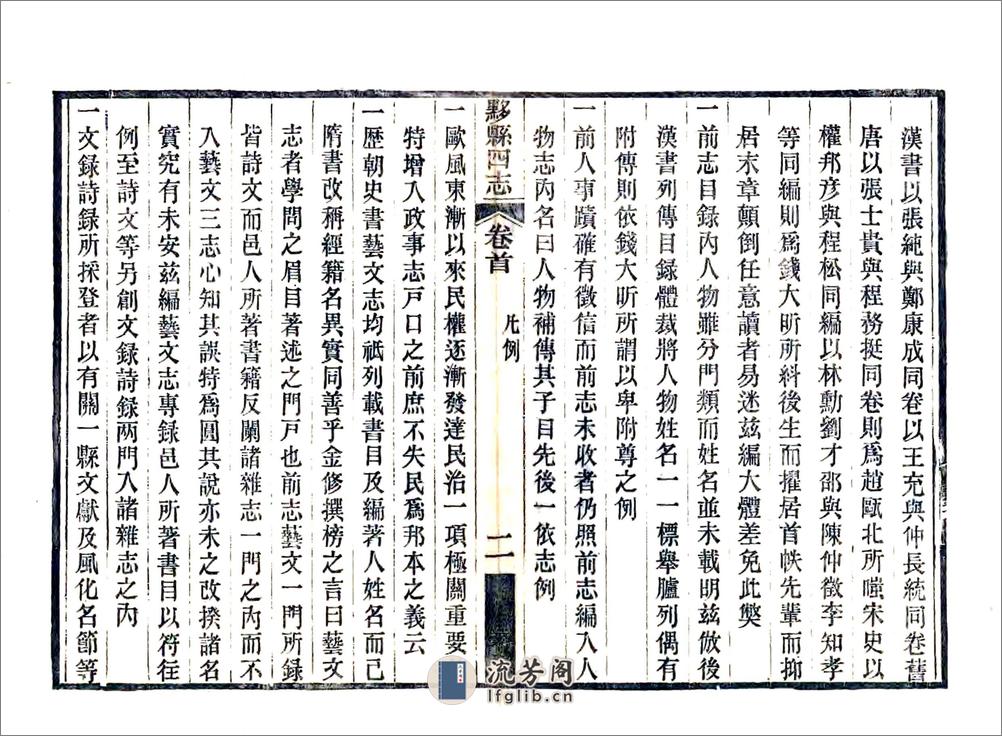 漢書以張純與鄭康成同卷以王充與仲長統同卷舊
唐以張士貴與程務挺同卷則爲趙甌北所嗤宋史以
權邦彥與程松同編以林勳劉才邵與陳仲微李知孝
等同編則爲錢大昕所糾後生而擢居首帙先輩而抑
居末章顛倒任意讀者易迷茲編大體差免此獘
一前志目錄內人物雖分門類而姓名並未載明茲倣後
漢書列傳目錄體裁將人物姓名一一標舉臚列偶有
附傳則依錢大昕所謂以卑附尊之例
一前人事蹟確有徵信而前志未收者仍照前志編入人
物志內名曰人物補傳其子目先後一依志例
黟縣四志
卷首
凡例
二
一歐風東漸以來民權逐漸發達民治一項極關重要
特增入政事志戸口之前庶不失民爲邦本之義云
一歷朝史書藝文志均祇列載書目及編著人姓名而已
隋書改稱經籍名異實同善乎金修撰榜之言曰藝文
志者學問之眉目著述之門戸也前志藝文一門所錄
皆詩文而邑人所著書籍反闌諸雜志一門之內而不
入藝文三志心知其誤特爲圓其說亦未之改揆諸名
實究有未安茲編藝文志專錄邑人所著書目以符往
例至詩文等另創文錄詩錄两門入諸雜志之內
一文錄詩錄所採登者以有關一縣文獻及風化名節等
流芳阁
lfglib.cn